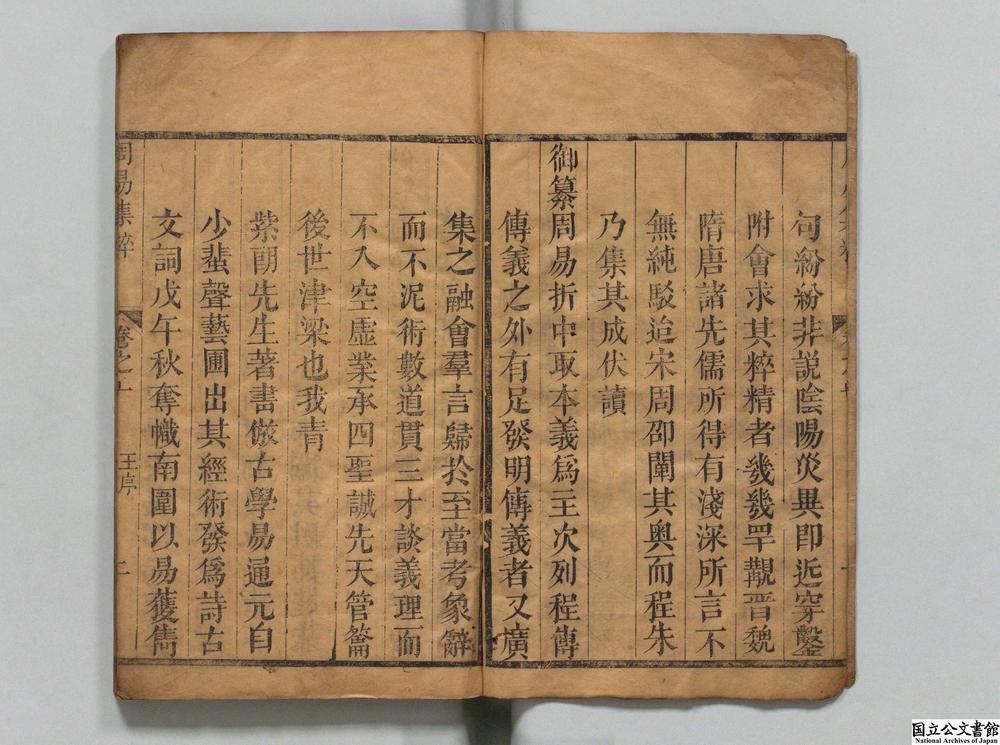 句紛紛非說陰陽災異即近穿鑿
附會求其粹精者幾幾罕覯晋魏
隋唐諸先儒所得有淺深所言不
無純駁迨宋周邵闡其奥而程朱
乃集其成伏讀
御纂周易折中取本義爲主次列程傳
傳義之外有足發明傳義者又廣
集之融會羣言歸於至當考象辭
而不泥術數道貫三才談義理而
不入空虛業承四聖誠先天管籥
後世津梁也我青
紫朝先生著書倣古學易通元自
少蜚聲藝圃出其經術發爲詩古
文詞戊午秋奪幟南圍以易獲雋
周易集粹
卷之上
王序
二
国立公文書館
National Archives of Japan